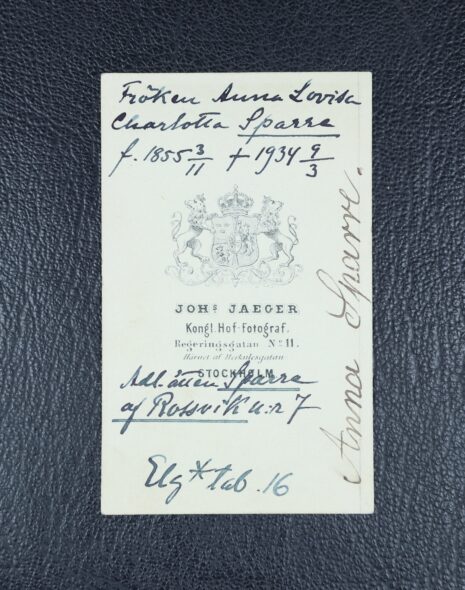 Fröken Anna Lovisa
Charlotta Sparre
f. 1855 3/11 † 1934 9/3
JOHS JAEGER
Kongl. Hof-Fotograf.
Regeringsgatan No 11.
Hörnet af Herkulesgatan
STOCKHOLM
Adl. ätten Sparre
af Rossvik n:r 7
Elg* tab. 16
Anna Sparre.